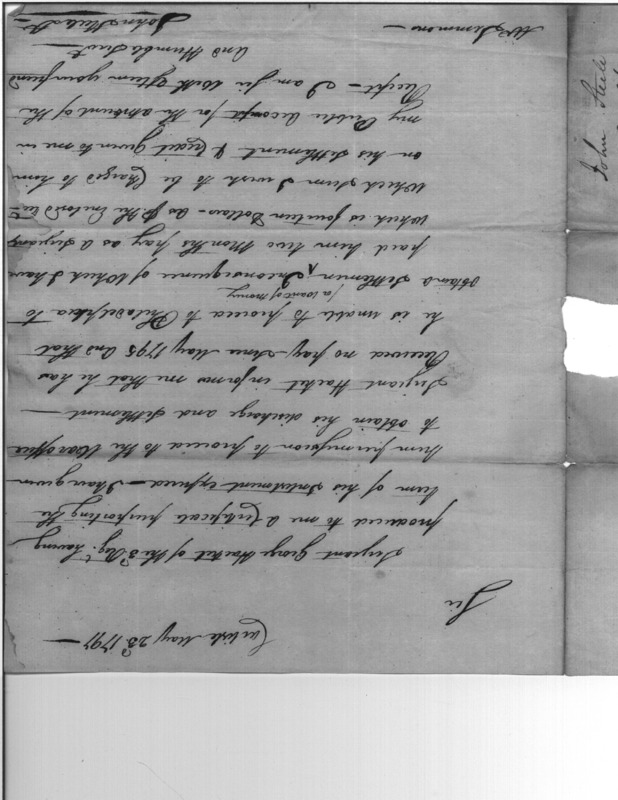 Carlisle May 23d 1797 —
Sir
Serjeant George Hacket of the 3d Regt. having
produced to me a Certificate purporting the
term of his Inlistment expired — I have given
him permission to proceed to the War office
to obtain his discharge and settlement —
Serjeant Hacket informs me that he has
Received no pay since May 1795 and that
he is unable to proceed to Philadelphia to
for want of money
obtain settlement ^ In consequence of Which I have
paid him two Months pay as a Serjeant
Which is fourteen Dollars — as pr. the Inclosed
Which Sum I wish to be Charged to him
on his settlement & Credit given to me in
my Public Account for the amount of the
Receipt — I am Sir With esteem your friend
and Humble Servt —
John Steele
Mr. Simmons —
John Steele